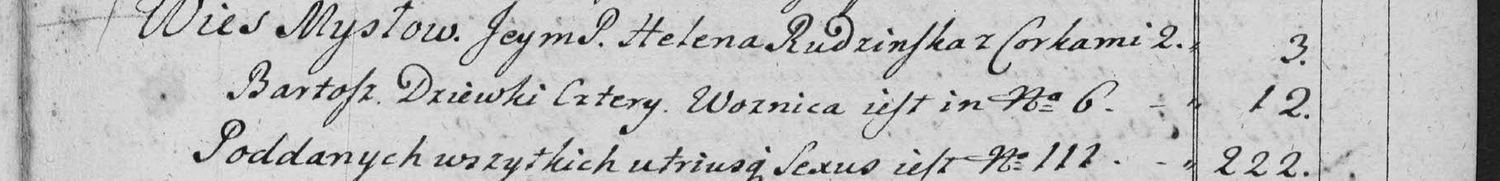 Wies Mysłow. Jeym P. Helena Rudzinska z Corkami 2. „ 3.
Bartosz. Dziewki Cztery. Woznica iest in No 6. - „ 12.
Poddanych wszytkich utriusq Sexus iest No 111. - „ 222.